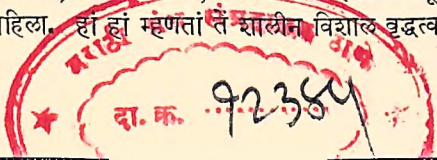 हिला. हां हां म्हणतां तें शालीन विशाल वृद्धत्व
मराठी ग्रंथ
दा. क्र. १२३४५